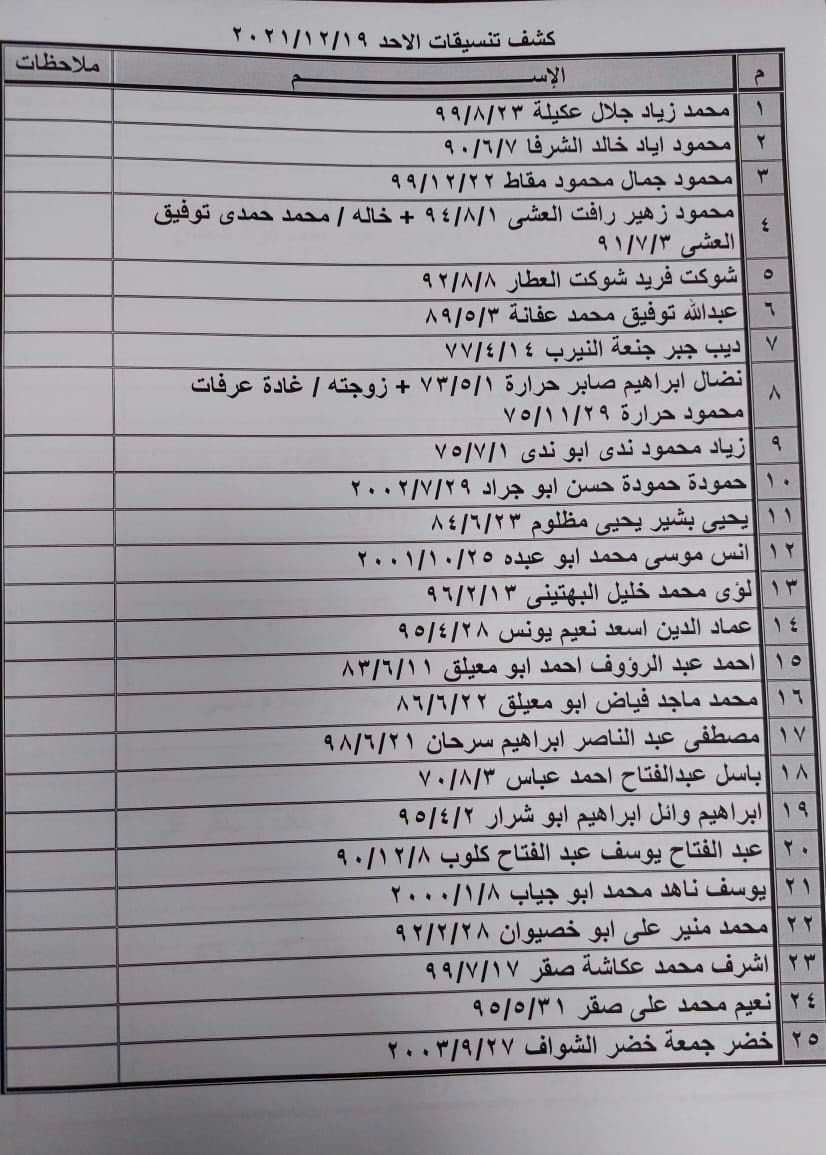 كشف تنسيقات الاحد ٢٠٢١/١٢/١٩
م الإســـــــــــم ملاحظات
١ محمد زياد جلال عكيلة ٩٩/٨/٢٣
٢ محمود اياد خالد الشرفا ٩٠/٦/٧
٣ محمود جمال محمود مقاط ٩٩/١٢/٢٢
٤ محمود زهير رافت العشى ٩٤/٨/١ + خاله / محمد حمدى توفيق
العشى ٩١/٧/٣
٥ شوكت فريد شوكت العطار ٩٢/٨/٨
٦ عبدالله توفيق محمد عفانة ٨٩/٥/٣
٧ ديب جبر جنعة النيرب ٧٧/٤/١٤
٨ نضال ابراهيم صابر حرارة ٧٣/٥/١ + زوجته / غادة عرفات
محمود حرارة ٧٥/١١/٢٩
٩ زياد محمود ندى ابو ندى ٧٥/٧/١
١٠ حمودة حمودة حسن ابو جراد ٢٠٠٢/٧/٢٩
١١ يحيى بشير يحيى مظلوم ٨٤/٦/٢٣
١٢ انس موسى محمد ابو عبده ٢٠٠١/١٠/٢٥
١٣ لؤى محمد خليل البهتينى ٩٦/٢/١٣
١٤ عماد الدين اسعد نعيم يونس ٩٥/٤/٢٨
١٥ احمد عبد الرؤوف احمد ابو معيلق ٨٣/٦/١١
١٦ محمد ماجد فياض ابو معيلق ٨٦/٦/٢٢
١٧ مصطفى عبد الناصر ابراهيم سرحان ٩٨/٦/٢١
١٨ باسل عبدالفتاح احمد عباس ٧٠/٨/٣
١٩ ابراهيم وائل ابراهيم ابو شرار ٩٥/٤/٢
٢٠ عبد الفتاح يوسف عبد الفتاح كلوب ٩٠/١٢/٨
٢١ يوسف ناهد محمد ابو جياب ٢٠٠٠/١/٨
٢٢ محمد منير على ابو خصيوان ٩٢/٢/٢٨
٢٣ اشرف محمد عكاشة صقر ٩٩/٧/١٧
٢٤ نعيم محمد على صقر ٩٥/٥/٣١
٢٥ خضر جمعة خضر الشواف ٢٠٠٣/٩/٢٧